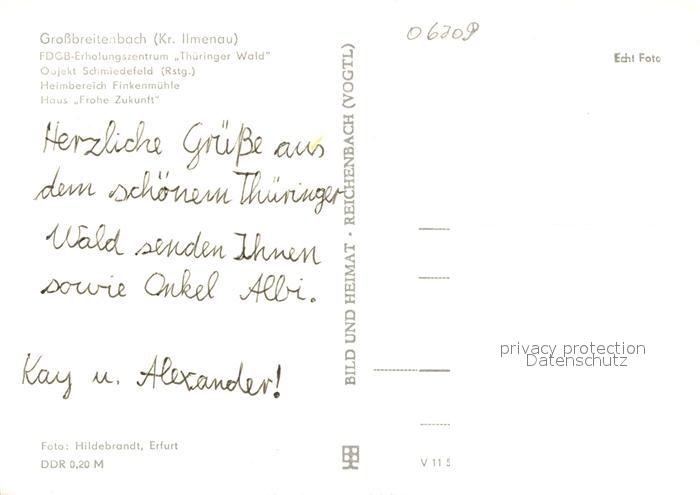 Großbreitenbach (Kr. Ilmenau)
FDGB-Erholungszentrum „Thüringer Wald"
Objekt Schmiedefeld (Rstg.)
Heimbereich Finkenmühle
Haus „Frohe Zukunft"
Herzliche Grüße aus
dem schönem Thüringer
Wald senden Ihnen
sowie Onkel Albi.
Kay u. Alexander!
Foto: Hildebrandt, Erfurt
DDR 0,20 M
BILD UND HEIMAT · REICHENBACH (VOGTL)
06209
Echt Foto
privacy protection
Datenschutz
V 11 5